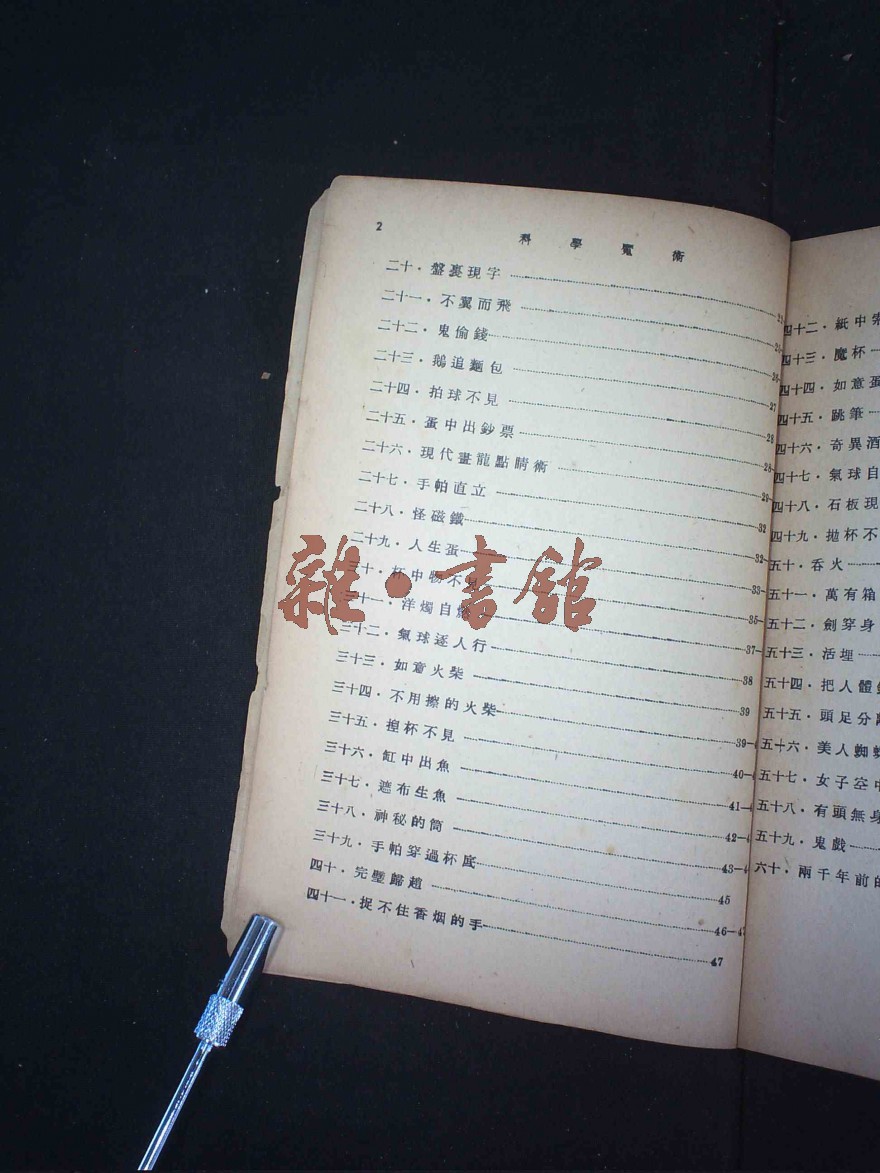 2
科學魔術
二十・盤裏現字
二十一・不翼而飛
二十二・鬼偷錢
二十三・鵝追麵包 26
二十四・拍球不見 27
二十五・蛋中出鈔票 28
二十六・現代畫龍點睛術 28
二十七・手帕直立 29
二十八・怪磁鐵 32
二十九・人生蛋 32
三十・杯中物不見 33
三十一・洋燭自燃 35
三十二・氣球逐人行 37
三十三・如意火柴 38
三十四・不用擦的火柴 39
三十五・揑杯不見 39
三十六・缸中出魚 40
三十七・遮布生魚 41
三十八・神秘的筒 42
三十九・手帕穿過杯底 43
四十・完璧歸趙 45
四十一・捉不住香烟的手 46—4
47
四十二・紙中
四十三・魔杯
四十四・如意蛋
四十五・跳筆
四十六・奇異酒
四十七・氣球自
四十八・石板現
四十九・拋杯不
五十・吞火
五十一・萬有箱
五十二・劍穿身
五十三・活埋
五十四・把人體
五十五・頭足分
五十六・美人蜘
五十七・女子空中
五十八・有頭無身
五十九・鬼戲
六十・兩千年前的
雜・書館